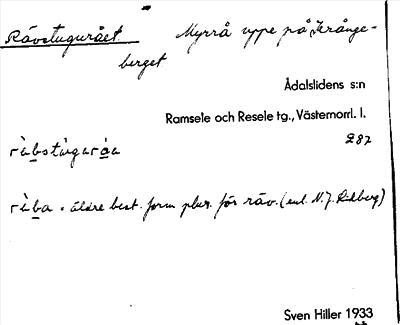 Rävstuguråët. Myrrå uppe på Krånge-
berget
Ådalslidens s:n
Ramsele och Resele tg., Västernorrl. l.
287
ràbstúgaråa
ràba . äldre best. form plur. för räv. (enl. N.J. Ridberg)
Sven Hiller 1933